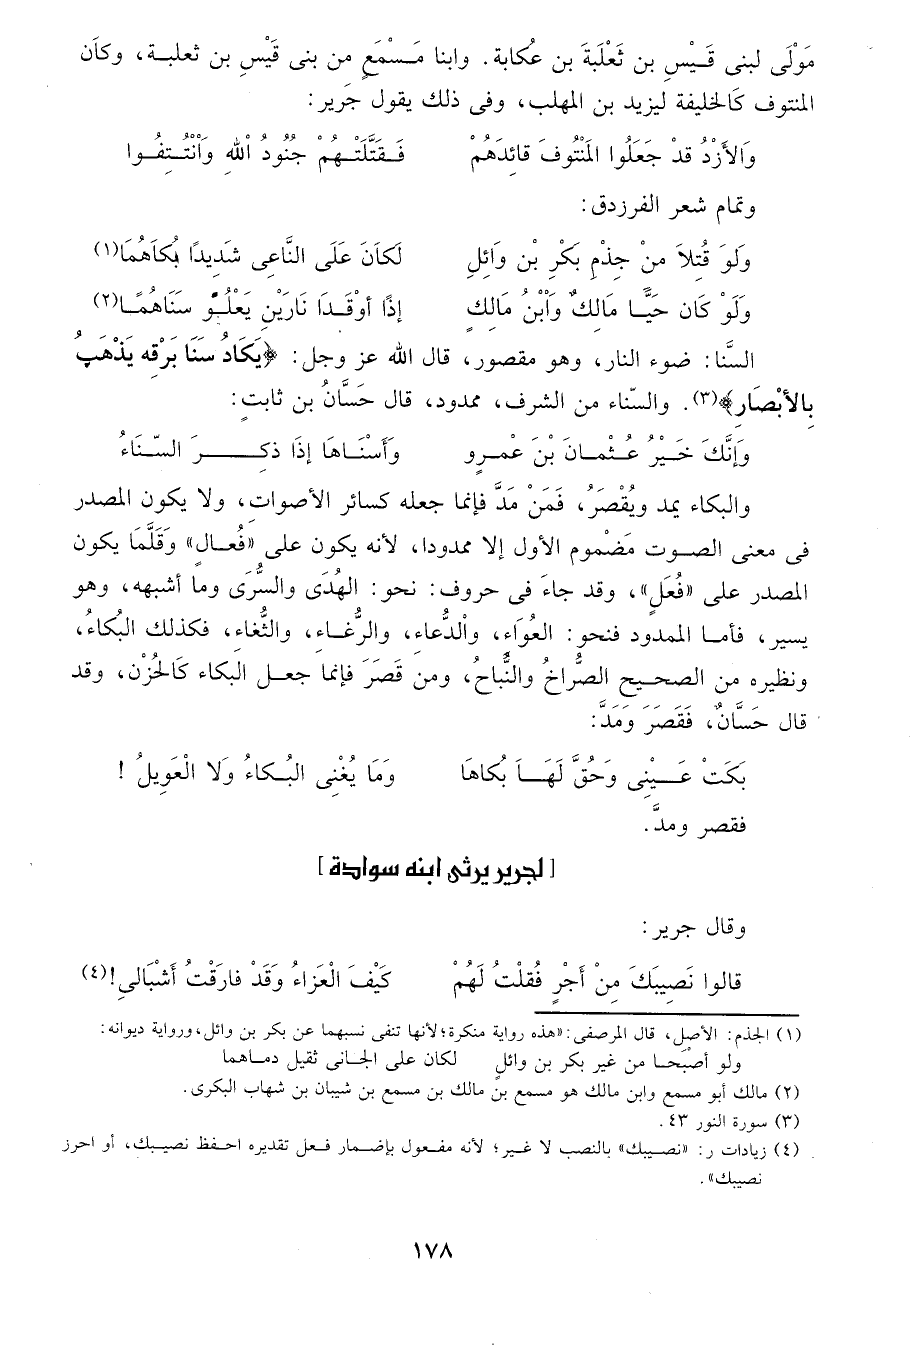 مَوْلَى لبنى قَـيْسِ بن ثَعْلَبَةَ بن عُكابة. وابنا مَـسْـمَعٍ من بنى قَيْسِ بن ثعلبـة، وكان
المنتوف كالخليفة ليزيد بن المهلب، وفى ذلك يقول جرير:
وَالأَزْدُ قدْ جَعَلُوا المَنْتُوفَ قائدَهُمْ    فَـقَتَّلَتْـهُمْ جنودُ اللهِ وَانْتُـتِفُـوا
وتمام شعر الفرزدق:
وَلَوْ قُتلاَ منْ جِذْمِ بَكْرِ بْنِ وَائلٍ    لَكَانَ عَلَى النَّاعِى شَدِيدًا بُكَاهُمَا(١)
وَلَوْ كان حَيًّـا مَالكٌ وَابْنُ مَالكٍ    إذًا أوْقَـدَا نَارَيْنِ يَعْلُـو سَنَاهُمَـا(٢)
السَّنا: ضوء النار، وهو مقصور، قال الله عز وجل: ﴿يَكَادُ سَنَا بَرْقه يَذْهَبُ
بالأَبْصَارِ﴾(٣). والسَّناء من الشرف، ممدود، قال حَسَّانُ بن ثابت:
وَإنَّكَ خَـيْرُ عُـثْمـانَ بْنَ عَمـرٍو    وَأسْنَـاهَا إذَا ذكـــرَ السَّـنَاءُ
والبكاء يمد ويُقْصَرُ، فَمَنْ مَدَّ فإنما جعله كسائر الأصوات، ولا يكون المصدر
فى معنى الصوت مَضْموم الأول إلا ممدودا، لأنه يكون على «فُعـال» وَقَلَّمَا يكون
المصدر على «فُعَلٍ»، وقد جاءَ فى حروف: نحو: الهُدَى والسُّرَى وما أشبهه، وهو
يسير، فأمـا الممدود فنحو: العُوَاءِ، والدُّعاء، والرُّغـاء، والثُّغاء، فكذلك البُكاء،
ونظيره من الصحـيح الصُّرَاخُ والنُّباحُ، ومن قَصَرَ فإنما جعـل البكاء كالحُزْن، وقد
قال حَسَّانٌ، فَقَصَرَ وَمَدَّ:
بَكَتْ عَـيْنِى وَحُقَّ لَهَـا بُكاهَا    وَمَا يُغْنِى البُـكاءُ وَلَا الْعَوِيلُ !
فقصر ومدَّ.
[لجرير يرثى ابنه سوادة]
وقال جرير:
قالوا نَصِيبَكَ منْ أجْرٍ فَقلْتُ لَهُمْ    كَيْفَ الْعَزاءُ وَقَدْ فارَقْتُ أشْبَالِى!(٤)
(١) الجذم: الأصل، قال المرصفى: «هذه رواية منكرة؛ لأنها تنفى نسبهما عن بكر بن وائل، ورواية ديوانه:
ولو أصبَحـا من غير بكر بن وائلٍ    لكان على الجـانى ثقيل دمـاهما
(٢) مالك أبو مسمع وابن مالك هو مسمع بن مالك بن مسمع بن شيبان بن شهاب البكرى.
(٣) سورة النور ٤٣.
(٤) زيادات ر: «نصـيبك» بالنصب لا غـير؛ لأنه مفـعول بإضـمار فـعل تقديره احـفظ نصيـبك، أو احرز
نصيبك».
١٧٨